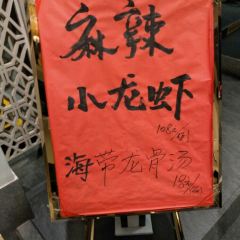 麻辣
小龙虾
108元/例
海带龙骨汤
18元/位